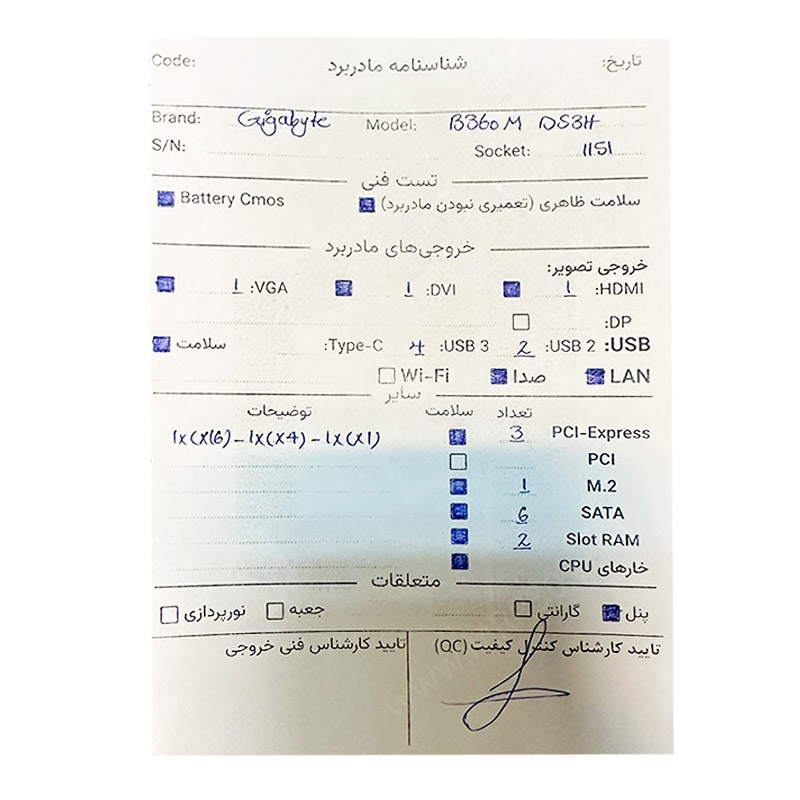 تاریخ: شناسنامه مادربرد Code:
Brand: Gigabyte Model: B360M DS3H
S/N: Socket: 1151
تست فنی
سلامت ظاهری (تعمیری نبودن مادربرد) Battery Cmos
خروجی‌های مادربرد
خروجی تصویر:
HDMI: 1 DVI: 1 VGA: 1
DP:
USB: USB 2: 2 USB 3: 4 Type-C: سلامت
LAN صدا Wi-Fi
سایر
تعداد سلامت توضیحات
PCI-Express 3 1x(x16) - 1x(x4) - 1x(x1)
PCI
M.2 1
SATA 6
Slot RAM 2
خارهای CPU
متعلقات
پنل گارانتی جعبه نورپردازی
تایید کارشناس کنترل کیفیت (QC) تایید کارشناس فنی خروجی